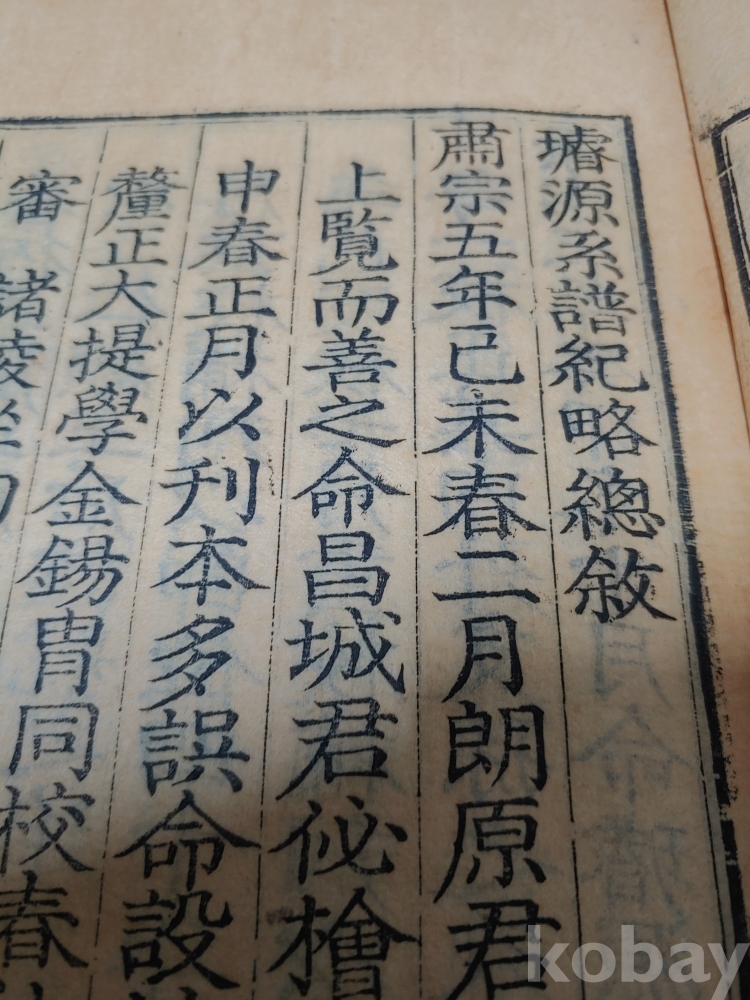 璿源系譜紀略總敘
肅宗五年己未春二月朗原君
上覧而善之命昌城君佖檜
申春正月以刊本多誤命設
釐正大提學金錫胄同校春
審 諸陵
kobay